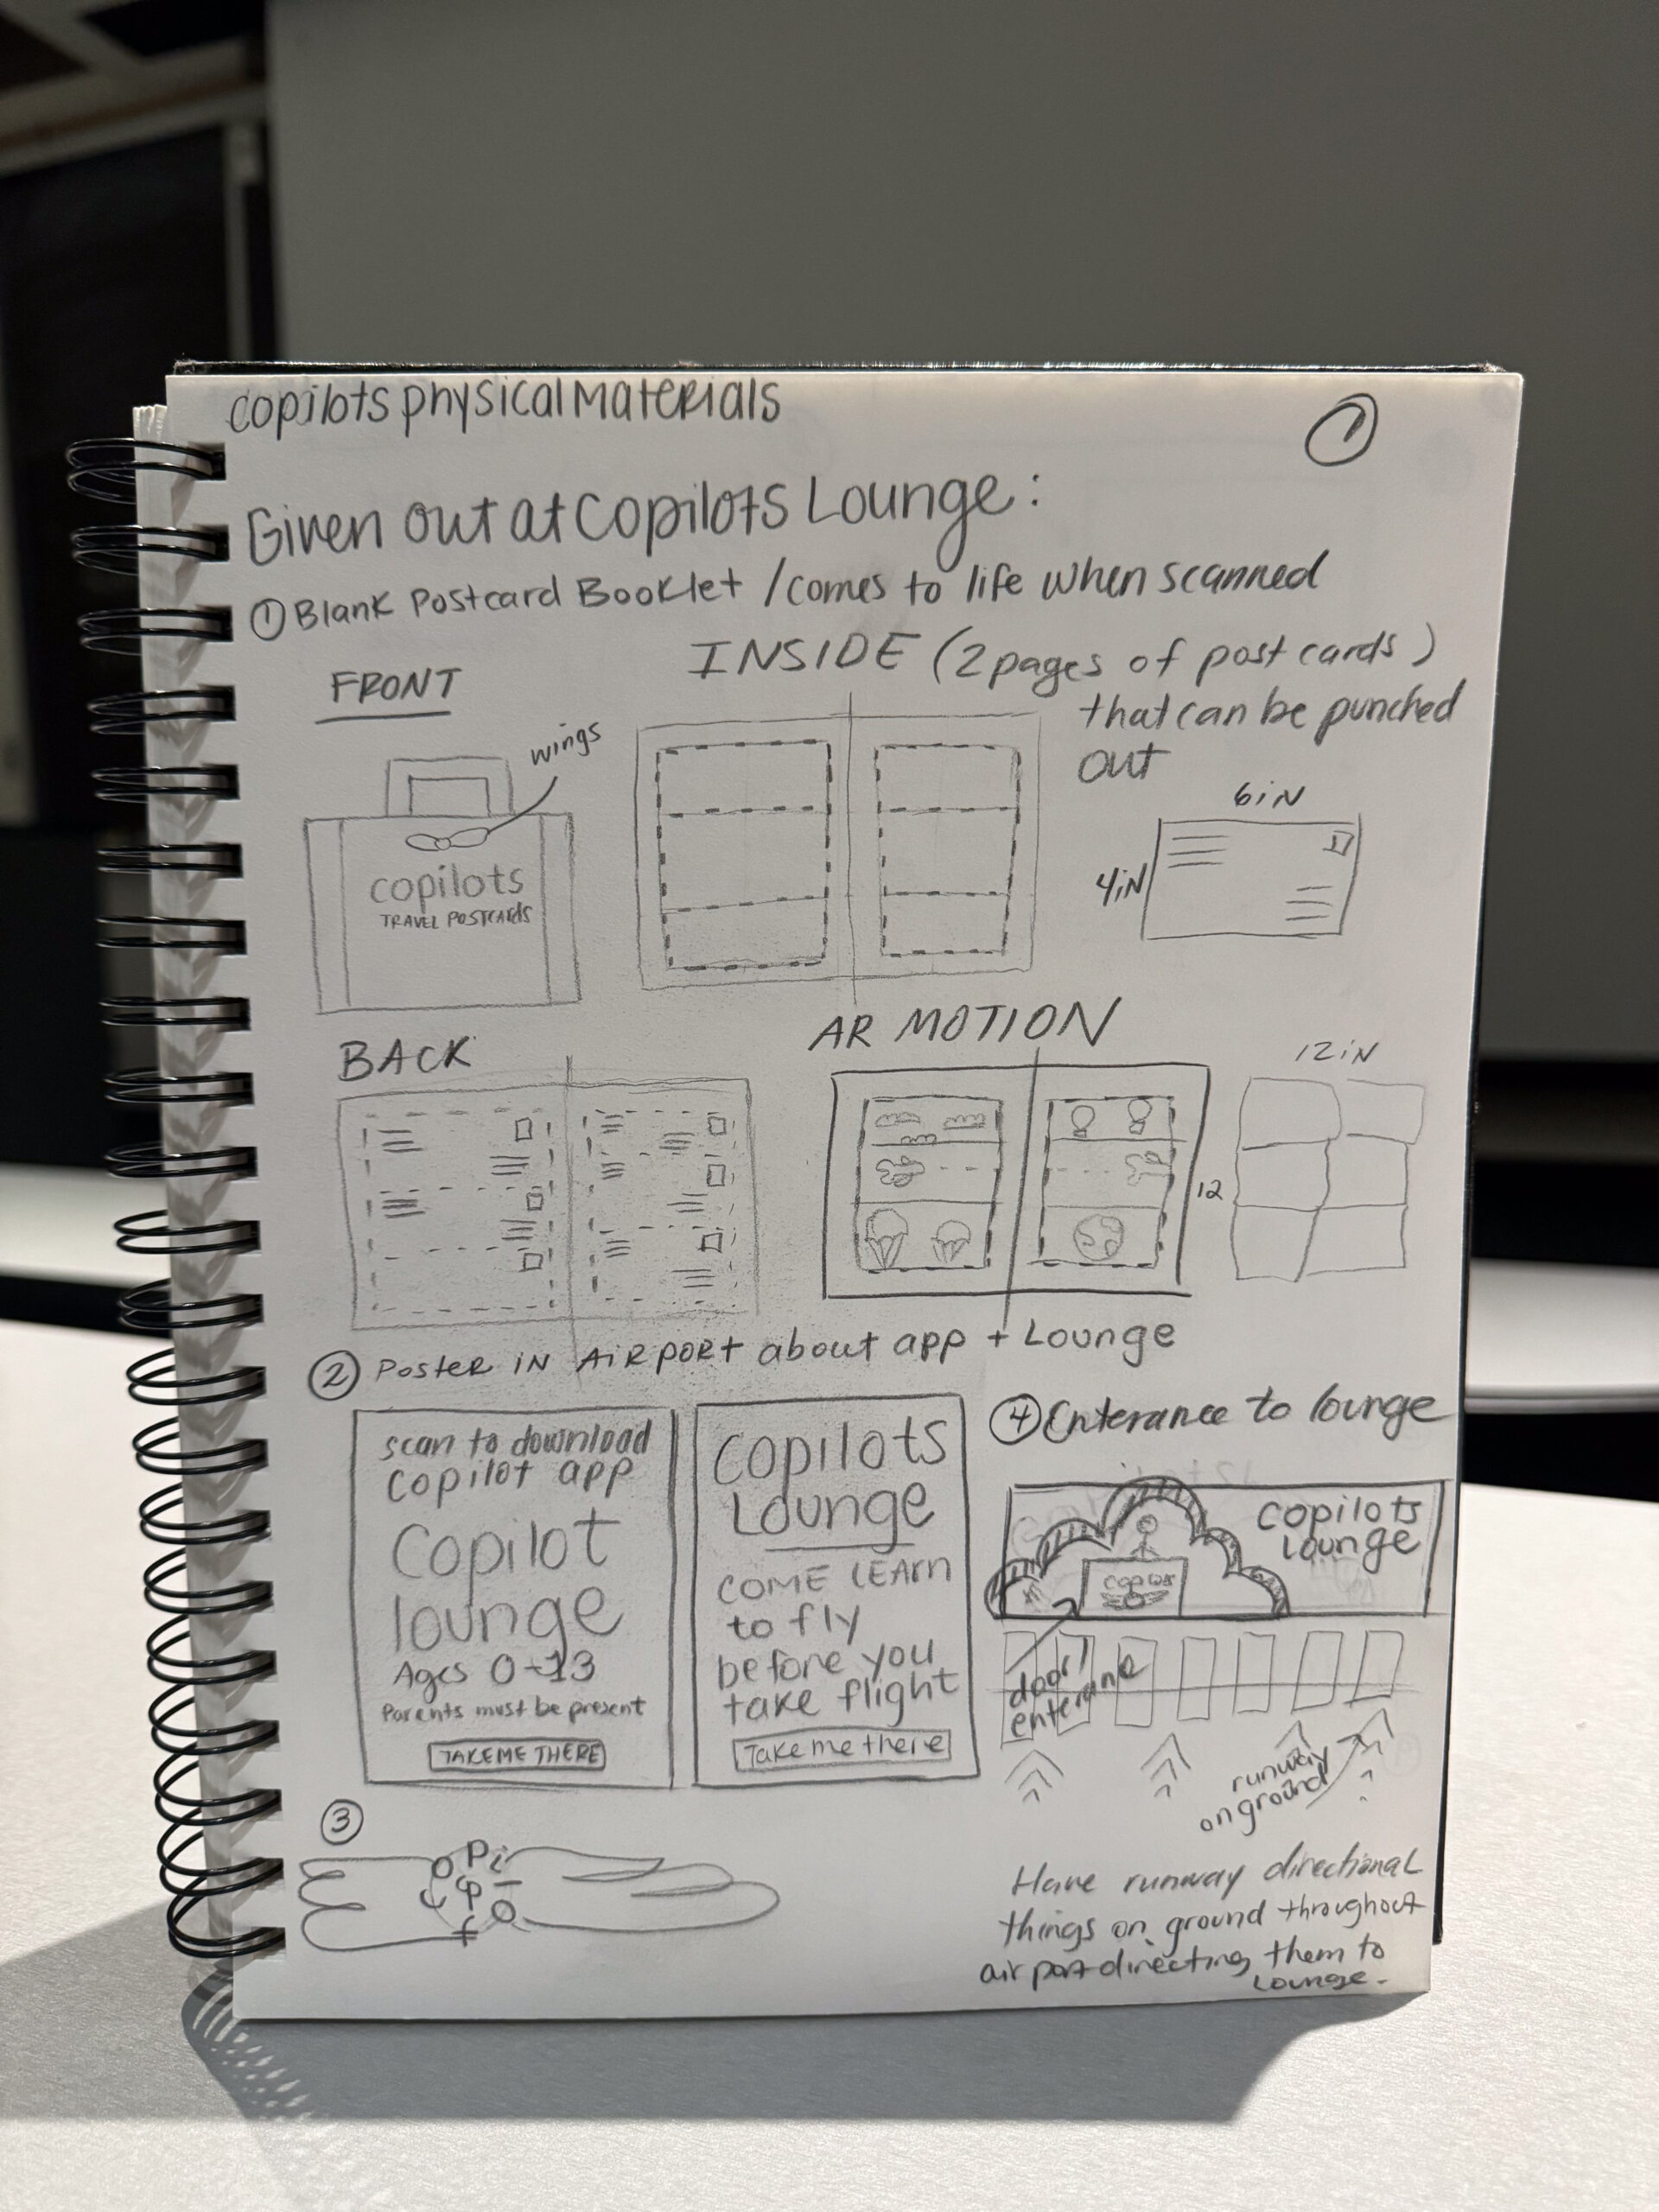 copilots physical Materials
1
Given out at Copilots Lounge:
① Blank Postcard Booklet / comes to life when scanned
FRONT
wings
copilots
TRAVEL POSTCARDS
INSIDE (2 pages of post cards)
that can be punched
out
6iN
4iN
BACK
AR MOTION
12iN
12
② Poster in Airport about app + Lounge
scan to download
copilot app
Copilot
lounge
Ages 0-13
Parents must be present
TAKE ME THERE
Copilots
Lounge
COME LEARN
to fly
before you
take flight
Take me there
④ Enterance to lounge
copilots
lounge
door/
enterance
runway
on ground
Have runway directional
things on ground throughout
airport directing them to
Lounge.
③